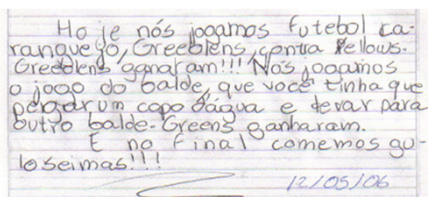 Ho je nós jogamos futebol ca-
ranguego, Greeblens, contra Yellows.
Greeblens ganaram!!! Nós jogamos
o jogo do balde, que você tinha que
pegar um copo d'água e levar para
outro balde. Greens ganharam.
E no final comemos gu-
loseimas!!!
12/05/06